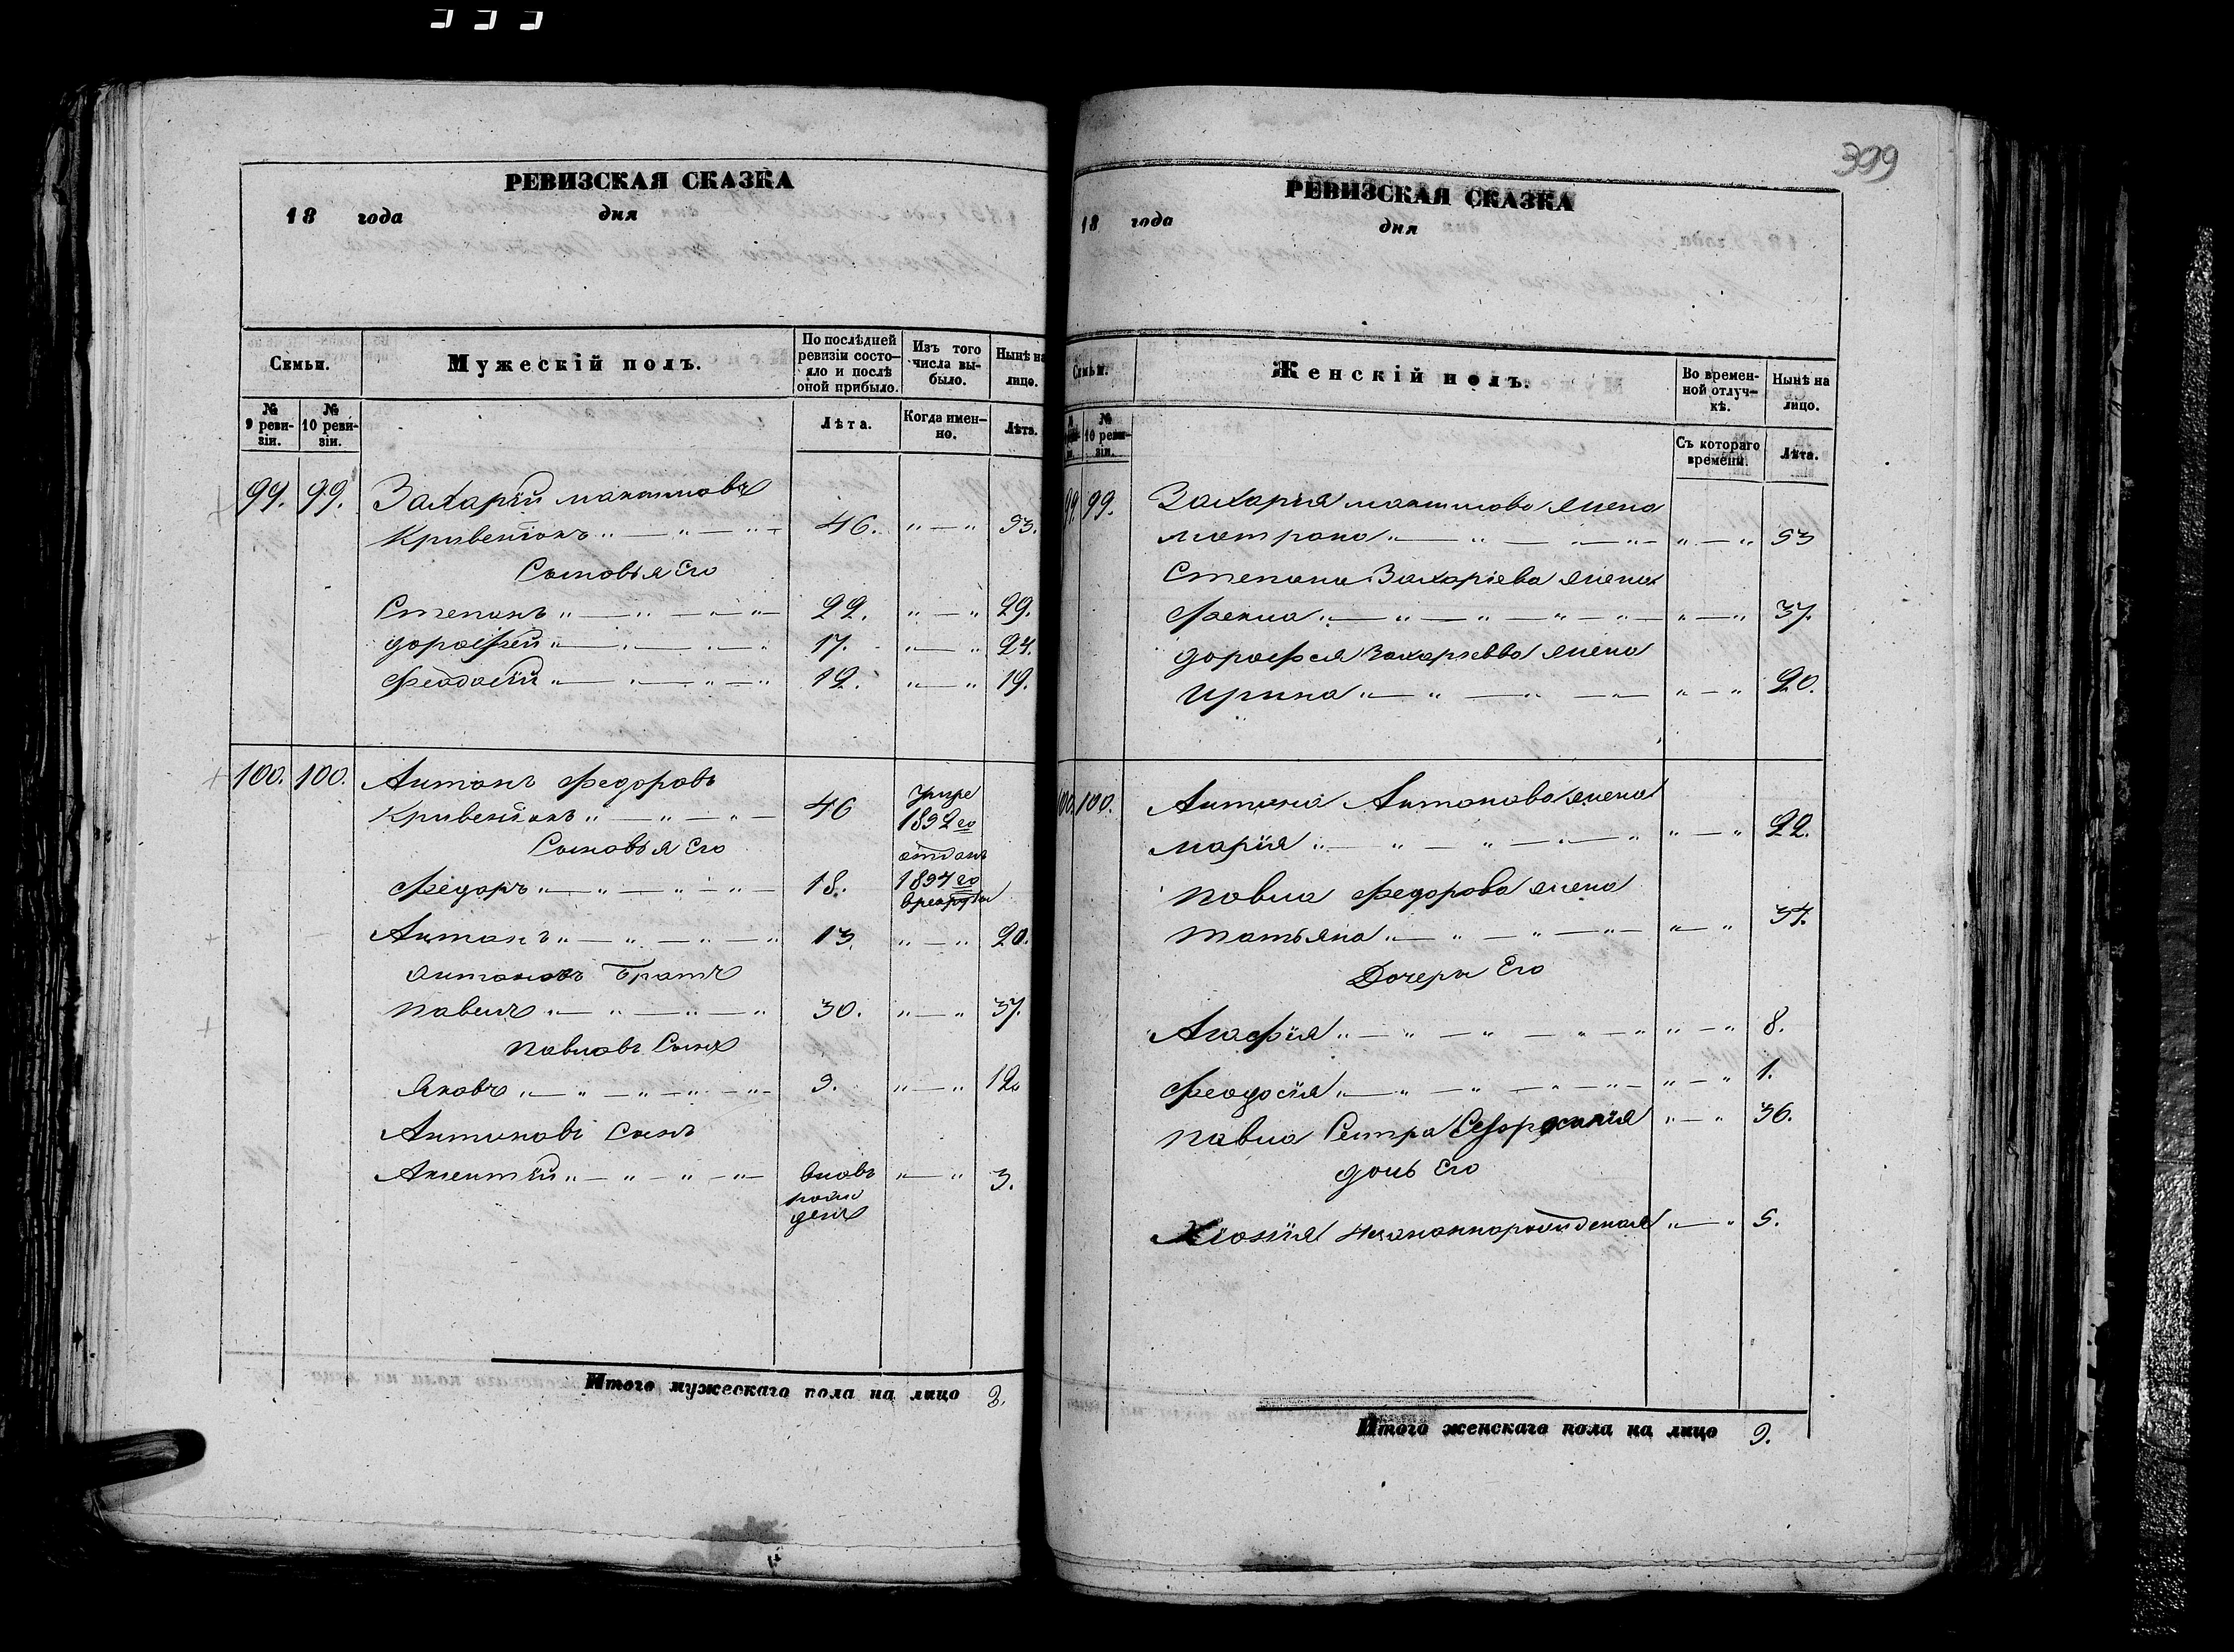 399
РЕВИЗСКАЯ СКАЗКА
18 года дня
Семьи.
Мужескій полъ.
По послѣдней ревизіи состояло и послѣ оной прибыло.
Изъ того числа выбыло.
Нынѣ на лицо.
№ 9 ревизіи.
№ 10 ревизіи.
Лѣта.
Когда именно.
Лѣта.
99. 99. Захарій Максимовъ
Кривенкокъ 46. 53.
Сыновья Его
Степанъ 22. 29.
Дорофей 17. 24.
Феодосій 12. 19.
100. 100. Антонъ Федоровъ
Кривенкокъ 46 умре 1852го
Сыновья Его
Федоръ 18. отданъ 1854го
Антонъ 13. 20.
Антоновъ Братъ
Павелъ 30. 37.
Павловъ Сынъ
Яковъ 5. 12.
Антоновъ Сынъ
Аксентій вновь рожденъ 3.
Итого мужескаго пола на лицо 8.
РЕВИЗСКАЯ СКАЗКА
18 года дня
Семьи.
Женскій полъ.
Во временной отлучкѣ.
Нынѣ на лицо.
№ 10 ревизіи.
Съ котораго времени.
Лѣта.
99. 99. Захарія Максимова жена
Матрона 53
Степана Захаріева жена
Фекла 37.
Дорофея Захаріева жена
Ирина 20.
100. 100. Антона Антонова жена
Марія 22.
Павла Федорова жена
Татьяна 34.
Дочери Его
Агафія 8.
Феодосія 1.
Павла Сестра 36.
дочь Его
5.
Итого женскаго пола на лицо 9.